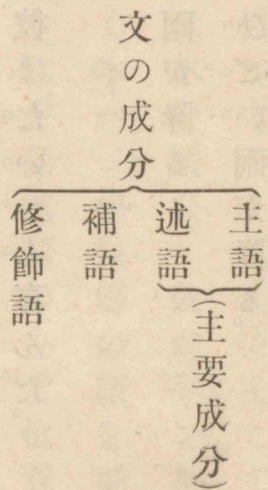 文の成分
主語
述語
(主要成分)
補語
修飾語